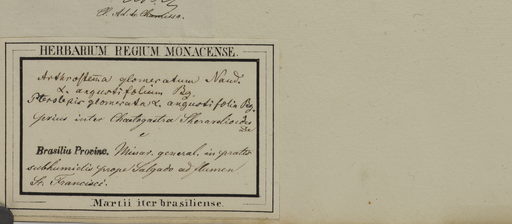 Cl. Ad. de Chamisso.
HERBARIUM REGIUM MONACENSE.
Arthrostema glomeratum Naud.
α. angustifolium Bg.
Pterolepis glomerata α. angustifolia Bg.
prius inter Chaetogastra
e
Brasilia Provinc. Minar. general. in pratis
subhumidis prope Salgado ad flumen
St. Francisci.
Martii iter brasiliense.